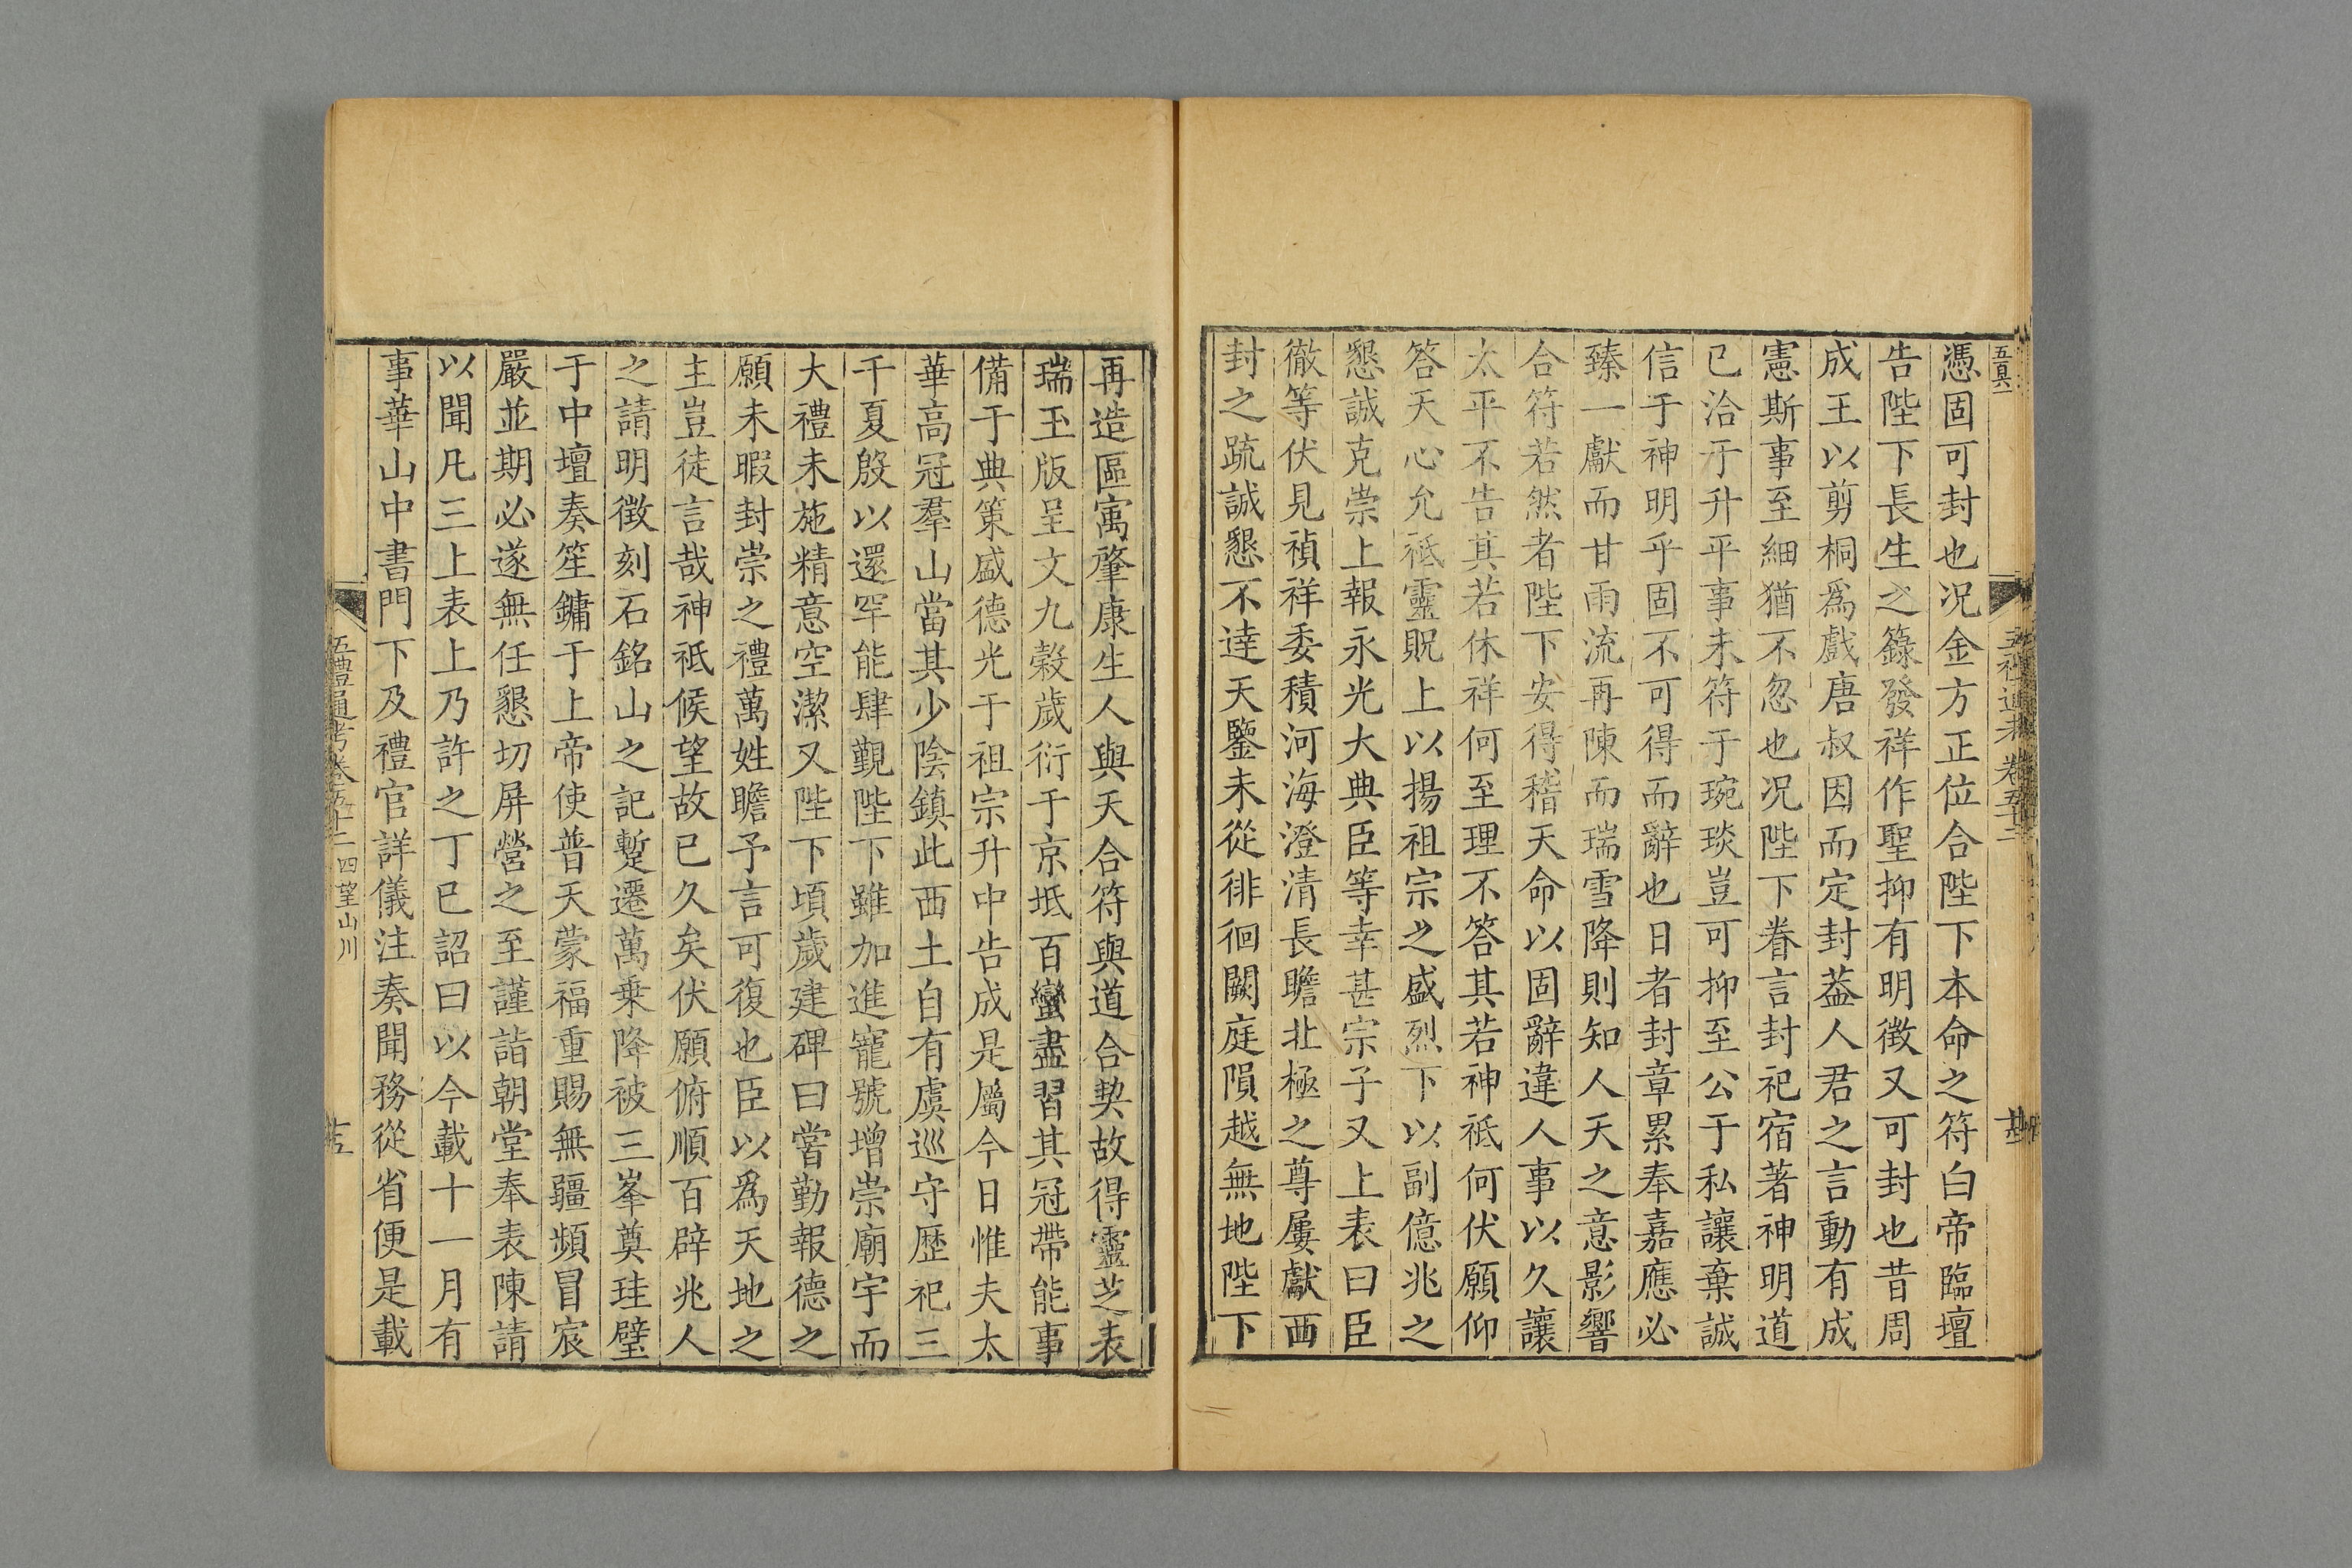 憑固可封也况金方正位合陛下本命之符白帝臨壇
告陛下長生之籙發祥作聖抑有明徴又可封也昔周
成王以剪桐爲戲唐叔因而定封葢人君之言動有成
憲斯事至細猶不忽也况陛下眷言封祀宿著神明道
已洽于升平事未符于琬琰豈可抑至公于私讓棄誠
信于神明乎固不可得而辭也日者封章累奉嘉應必
臻一獻而甘雨流再陳而瑞雪降則知人天之意影響
合符若然者陛下安得稽天命以固辭違人事以久讓
太平不告其若休祥何至理不答其若神祇何伏願仰
答天心允祗靈貺上以揚祖宗之盛烈下以副億兆之
懇誠克崇上報永光大典臣等幸甚宗子又上表曰臣
徹等伏見禎祥委積河海澄清長瞻北極之尊屢獻西
封之疏誠懇不達天鑒未從徘徊闕庭隕越無地陛下
再造區寓肇康生人與天合符與道合契故得靈芝表
瑞玉版呈文九榖歲衍于京坻百蠻盡習其冠帶能事
備于典策盛德光于祖宗升中告成是屬今日惟夫太
華高冠羣山當其少陰鎮此西土自有虞巡守歷祀三
千夏殷以還罕能肆覲陛下雖加進寵號增崇廟宇而
大禮未施精意空潔又陛下頃歲建碑曰嘗勤報德之
願未暇封崇之禮萬姓瞻予言可復也臣以爲天地之
主豈徒言哉神祇候望故已久矣伏願俯順百辟兆人
之請明徴刻石銘山之記蹔遷萬乗降被三峯奠珪璧
于中壇奏笙鏞于上帝使普天蒙福重賜無疆頻冒宸
嚴並期必遂無任懇切屏營之至謹詣朝堂奉表陳請
以聞凡三上表上乃許之丁巳詔曰以今載十一月有
事華山中書門下及禮官詳儀注奏聞務從省便是載
五禮通考卷五十二 四望山川